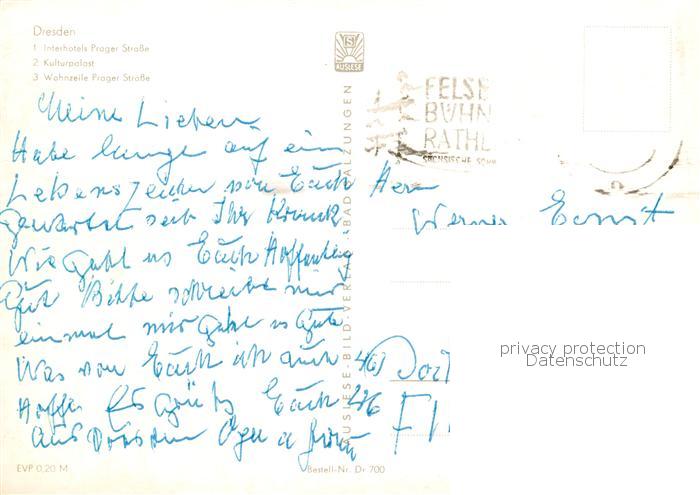 Dresden
1 Interhotels Prager Straße
2 Kulturpalast
3 Wohnzeile Prager Straße
Meine Lieben
Habe lange auf ein
Lebenszeichen von Euch
gewartet seit Ihr Krank
Wie geht es Euch Hoffentlich
gut Bitte schreibt mir
einmal mir geht es gute
Was von Euch ich auch
Hoffe Es Grüßt Euch
aus Dresden
AUSLESE
AUSLESE-BILD-VERLAG BAD SALZUNGEN
FELSE
BÜHN
RATHE
SÄCHSISCHE SCHW
Herr
Werner Ernst
privacy protection
Datenschutz
EVP 0,20 M
Bestell-Nr. Dr 700